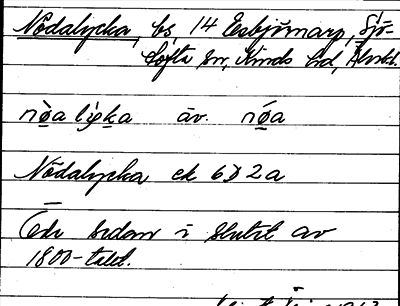 Nödalycka, bs, 14 Esbjörnarp, Sjö-
tofta sn, Kinds hd, Älvsbl.
nö̀a lỳka äv. nö́a
Nödalycka ek 6D2a
Öde sedan i slutet av
1800-talet.